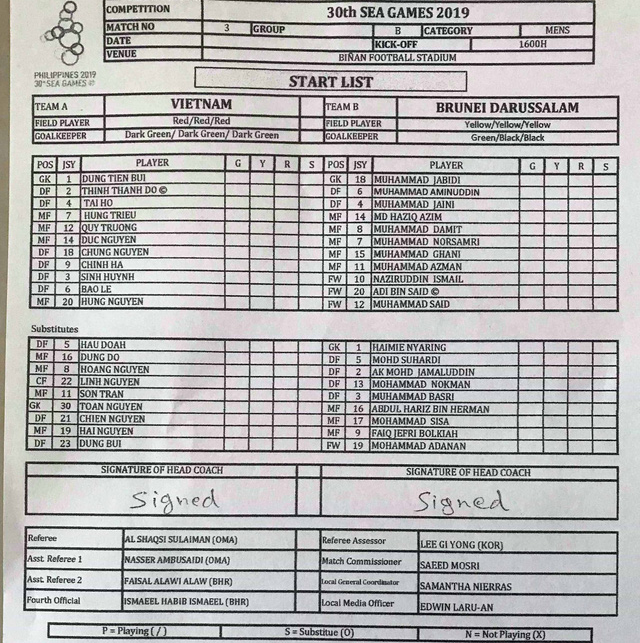 COMPETITION 30th SEA GAMES 2019
MATCH NO 3 GROUP B CATEGORY MENS
DATE KICK-OFF 1600H
VENUE BIÑAN FOOTBALL STADIUM
PHILIPPINES 2019
30th SEA GAMES
START LIST
TEAM A VIETNAM TEAM B BRUNEI DARUSSALAM
FIELD PLAYER Red/Red/Red FIELD PLAYER Yellow/Yellow/Yellow
GOALKEEPER Dark Green/ Dark Green/ Dark Green GOALKEEPER Green/Black/Black
POS JSY PLAYER G Y R S POS JSY PLAYER G Y R S
GK 1 DUNG TIEN BUI GK 18 MUHAMMAD JABIDI
DF 2 THINH THANH DO © DF 6 MUHAMMAD AMINUDDIN
DF 4 TAI HO DF 4 MUHAMMAD JAINI
MF 7 HUNG TRIEU MF 14 MD HAZIQ AZIM
MF 12 QUY TRUONG MF 8 MUHAMMAD DAMIT
MF 14 DUC NGUYEN MF 7 MUHAMMAD NORSAMRI
DF 18 CHUNG NGUYEN MF 15 MUHAMMAD GHANI
DF 9 CHINH HA MF 11 MUHAMMAD AZMAN
DF 3 SINH HUYNH FW 10 NAZIRUDDIN ISMAIL
DF 6 BAO LE FW 20 ADI BIN SAID ©
MF 20 HUNG NGUYEN FW 12 MUHAMMAD SAID
Substitutes
DF 5 HAU DOAH GK 1 HAIMIE NYARING
MF 16 DUNG DO DF 5 MOHD SUHARDI
MF 8 HOANG NGUYEN DF 2 AK MOHD JAMALUDDIN
CF 22 LINH NGUYEN DF 13 MOHAMMAD NOKMAN
MF 11 SON TRAN DF 3 MUHAMMAD BASRI
GK 30 TOAN NGUYEN MF 16 ABDUL HARIZ BIN HERMAN
DF 21 CHIEN NGUYEN MF 17 MOHAMMAD SISA
MF 19 HAI NGUYEN MF 9 FAIQ JEFRI BOLKIAH
DF 23 DUNG BUI FW 19 MOHAMMAD ADANAN
SIGNATURE OF HEAD COACH SIGNATURE OF HEAD COACH
Signed Signed
Referee AL SHAQSI SULAIMAN (OMA) Referee Assessor LEE GI YONG (KOR)
Asst. Referee 1 NASSER AMBUSAIDI (OMA) Match Commissioner SAEED MOSRI
Asst. Referee 2 FAISAL ALAWI ALAW (BHR) Local General Coordinator SAMANTHA NIERRAS
Fourth Official ISMAEEL HABIB ISMAEEL (BHR) Local Media Officer EDWIN LARU-AN
P = Playing ( / ) S = Substitue (O) N = Not Playing (X)